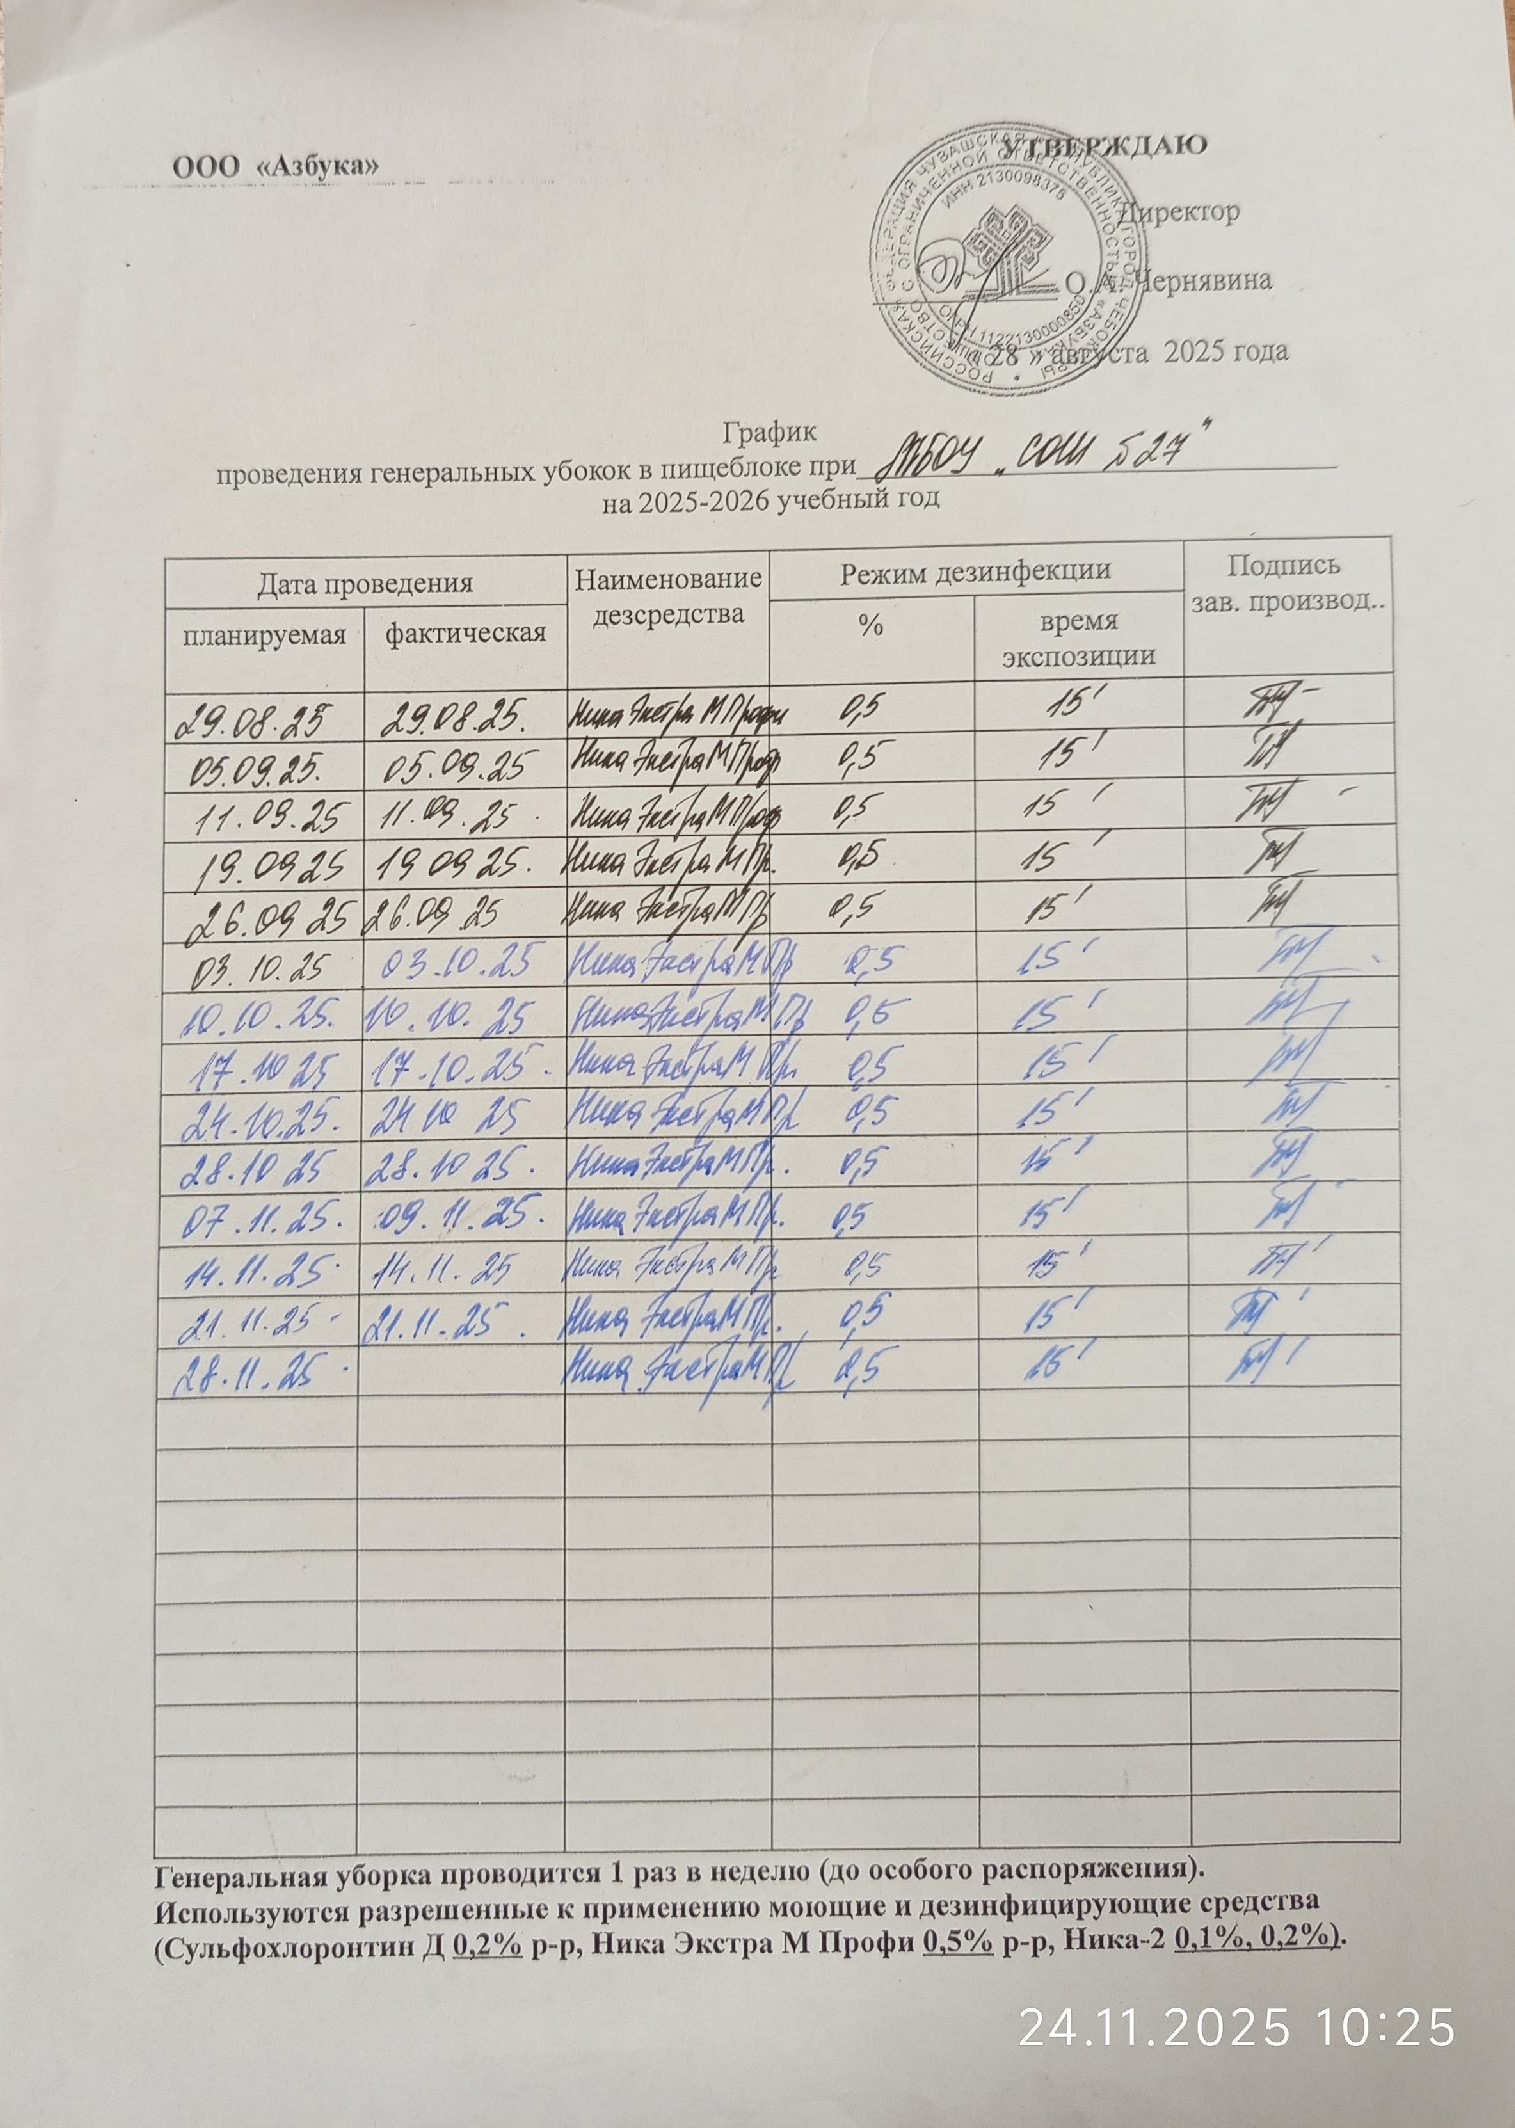 ООО «Азбука»
УТВЕРЖДАЮ
Директор
О.А. Чернявина
28 » августа 2025 года
РОССИЙСКАЯ ФЕДЕРАЦИЯ ЧУВАШСКАЯ РЕСПУБЛИКА ГОРОД ЧЕБОКСАРЫ
ОБЩЕСТВО С ОГРАНИЧЕННОЙ ОТВЕТСТВЕННОСТЬЮ «АЗБУКА»
ИНН 2130098376
ОГРН 1122130000850
График
проведения генеральных убокок в пищеблоке при МБОУ „СОШ №27"
на 2025-2026 учебный год
Дата проведения Наименование дезсредства Режим дезинфекции Подпись зав. производ..
планируемая фактическая % время экспозиции
29.08.25 29.08.25. Ника Экстра М Профи 0,5 15'
05.09.25. 05.09.25 Ника Экстра М Проф 0,5 15'
11.09.25 11.09.25 Ника Экстра М Проф 0,5 15'
19.09 25 19 09 25. Ника Экстра М Пр. 0,5 15'
26.09 25 26.09 25 Ника Экстра М Пр 0,5 15'
03.10.25 03.10.25 Ника Экстра М Пр 0,5 15'
10.10.25. 10.10.25 Ника Экстра М Пр 0,5 15'
17.10 25 17.10.25. Ника Экстра М Пр. 0,5 15'
24.10.25. 24 10 25 Ника Экстра М Пр 0,5 15'
28.10 25 28.10 25. Ника Экстра М Пр. 0,5 15'
07.11.25. 09.11.25. Ника Экстра М Пр. 0,5 15'
14.11.25. 14.11.25 Ника Экстра М Пр 0,5 15'
21.11.25 21.11.25. Ника Экстра М Пр. 0,5 15'
28.11.25. Ника Экстра М Пр 0,5 15'
Генеральная уборка проводится 1 раз в неделю (до особого распоряжения).
Используются разрешенные к применению моющие и дезинфицирующие средства
(Сульфохлоронтин Д 0,2% р-р, Ника Экстра М Профи 0,5% р-р, Ника-2 0,1%, 0,2%).
24.11.2025 10:25